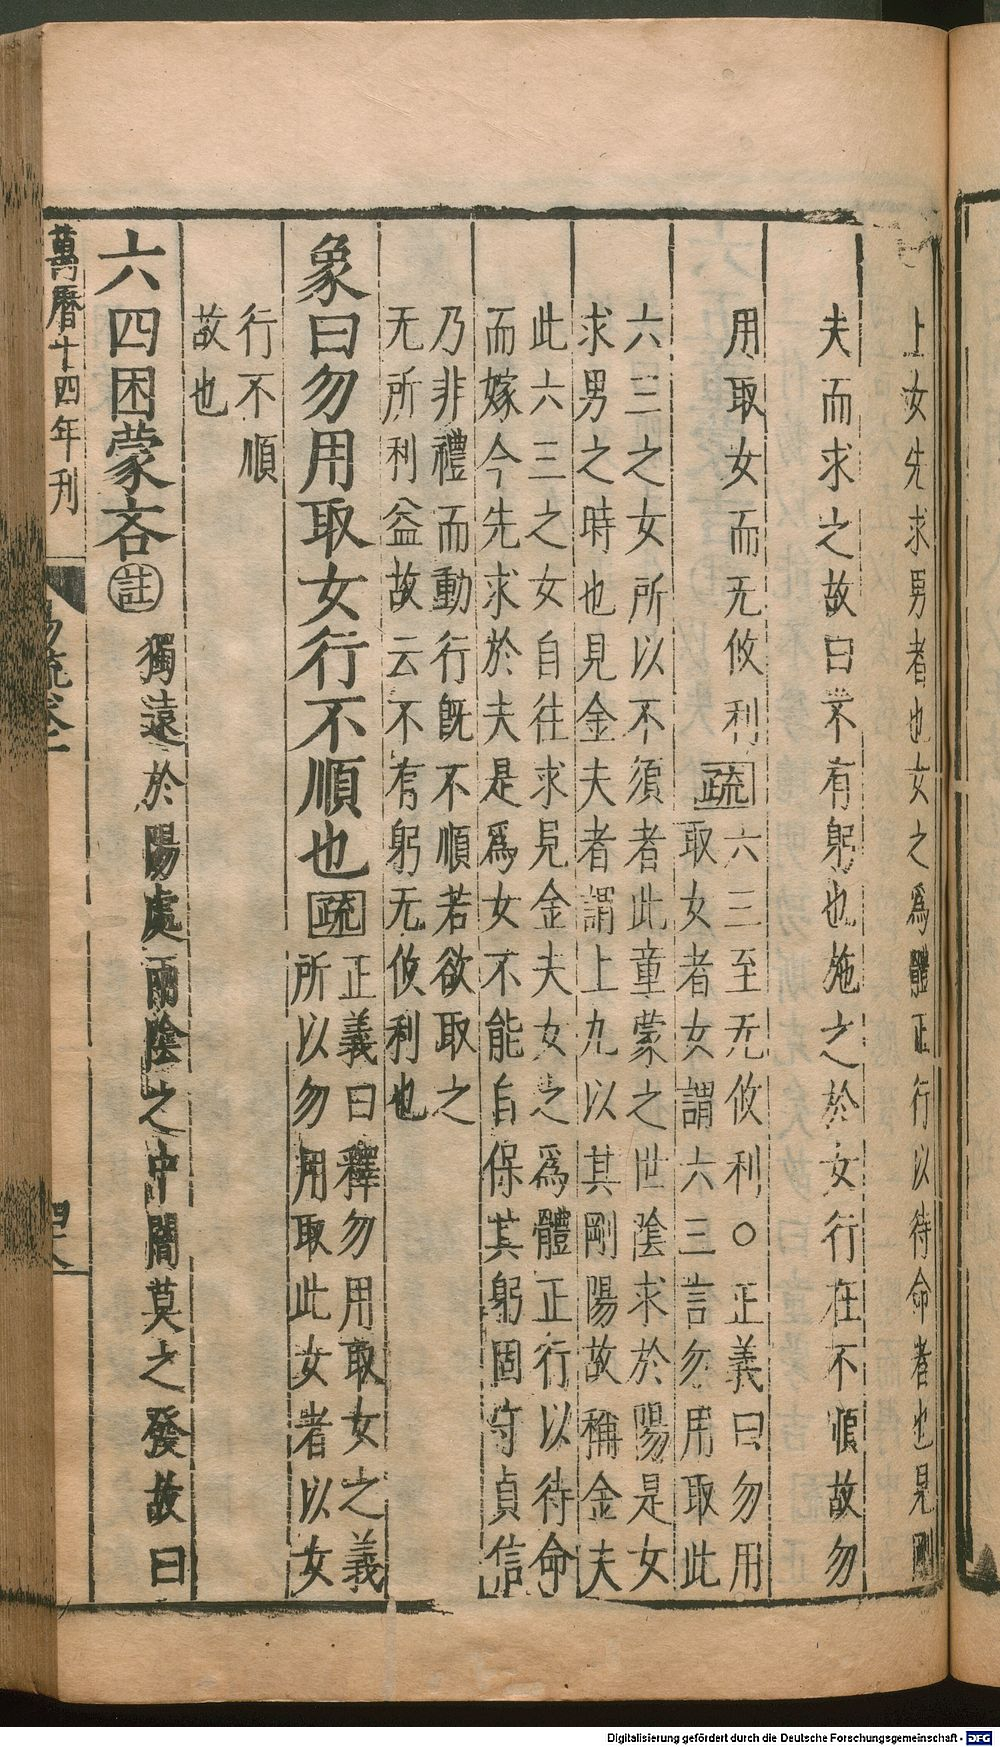 上女先求男者也女之爲體正行以待命者也見剛
夫而求之故曰不有躬也施之於女行在不順故勿
用取女而无攸利疏六三至无攸利○正義曰勿用
取女者女謂六三言勿用取此
六三之女所以不須者此童蒙之世陰求於陽是女
求男之時也見金夫者謂上九以其剛陽故稱金夫
此六三之女自往求見金夫女之爲體正行以待命
而嫁今先求於夫是爲女不能自保其躬固守貞信
乃非禮而動行既不順若欲取之
无所利益故云不有躬无攸利也
象曰勿用取女行不順也疏正義曰釋勿用取女之義
所以勿用取此女者以女
行不順
故也
六四困蒙吝註獨遠於陽處兩陰之中闇莫之發故曰
萬曆十四年刊
易疏卷二
Digitalisierung gefördert durch die Deutsche Forschungsgemeinschaft - DFG